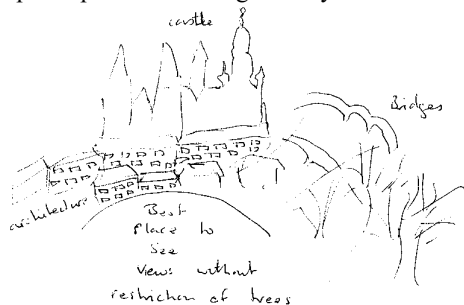 castle
Bridges
architecture
Best
Place to
See
View: without
restriction of trees